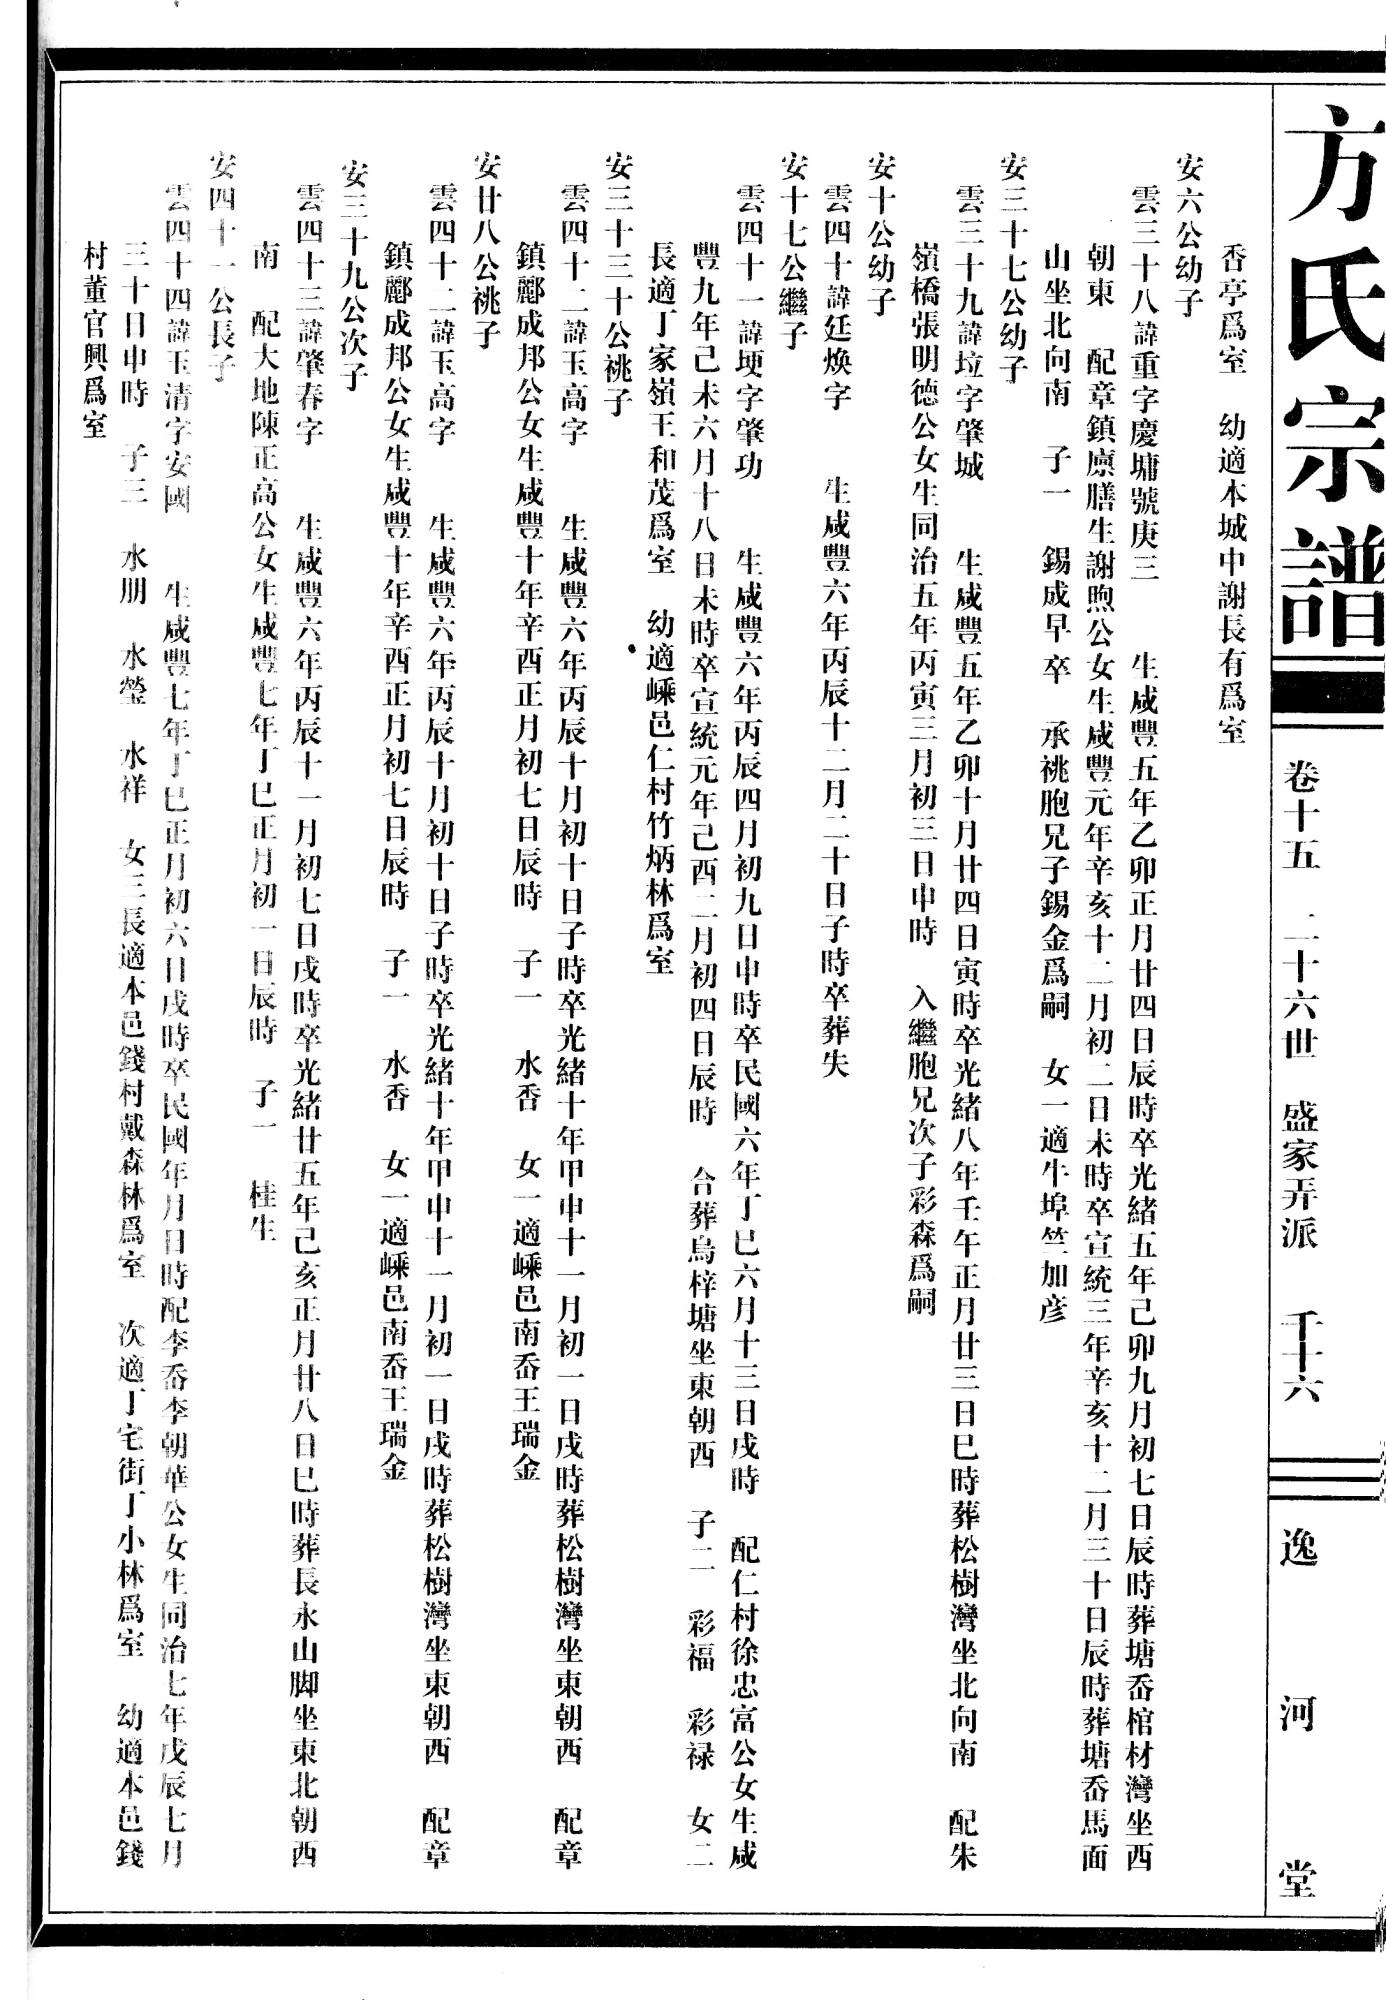 方氏宗譜
卷十五 二十六世 盛家弄派 千十六
逸河堂
香亭爲室 幼適本城中謝長有爲室
安六公幼子
雲三十八諱重字慶墉號庚三 生咸豐五年乙卯正月廿四日辰時卒光緒五年己卯九月初七日辰時葬塘岙棺材灣坐西
朝東 配章鎮廩膳生謝煦公女生咸豐元年辛亥十二月初二日未時卒宣統三年辛亥十二月三十日辰時葬塘岙馬面
山坐北向南 子一 錫成早卒 承祧胞兄子錫金爲嗣 女一適牛埠竺加彦
安三十七公幼子
雲三十九諱垃字肇城 生咸豐五年乙卯十月廿四日寅時卒光緒八年壬午正月廿三日巳時葬松樹灣坐北向南 配朱
嶺橋張明德公女生同治五年丙寅三月初三日申時 入繼胞兄次子彩森爲嗣
安十公幼子
雲四十諱廷焕字 生咸豐六年丙辰十二月二十日子時卒葬失
安十七公繼子
雲四十一諱埂字肇功 生咸豐六年丙辰四月初九日申時卒民國六年丁巳六月十三日戌時 配仁村徐忠富公女生咸
豐九年己未六月十八日未時卒宣統元年己酉二月初四日辰時 合葬烏梓塘坐東朝西 子二 彩福 彩禄 女二
長適丁家嶺王和茂爲室 幼適嵊邑仁村竹炳林爲室
安三十三十公祧子
雲四十二諱玉高字 生咸豐六年丙辰十月初十日子時卒光緒十年甲申十一月初一日戌時葬松樹灣坐東朝西 配章
鎮酈成邦公女生咸豐十年辛酉正月初七日辰時 子一 水香 女一適嵊邑南岙王瑞金
安廿八公祧子
雲四十二諱玉高字 生咸豐六年丙辰十月初十日子時卒光緒十年甲申十一月初一日戌時葬松樹灣坐東朝西 配章
鎮酈成邦公女生咸豐十年辛酉正月初七日辰時 子一 水香 女一適嵊邑南岙王瑞金
安三十九公次子
雲四十三諱肇春字 生咸豐六年丙辰十一月初七日戌時卒光緒廿五年己亥正月廿八日巳時葬長永山脚坐東北朝西
南 配大地陳正高公女生咸豐七年丁巳正月初一日辰時 子一 桂生
安四十一公長子
雲四十四諱玉清字安國 生咸豐七年丁巳正月初六日戌時卒民國年月日時配李岙李朝華公女生同治七年戊辰七月
三十日申時 子三 水朋 水瑩 水祥 女三長適本邑錢村戴森林爲室 次適丁宅街丁小林爲室 幼適本邑錢
村董官興爲室